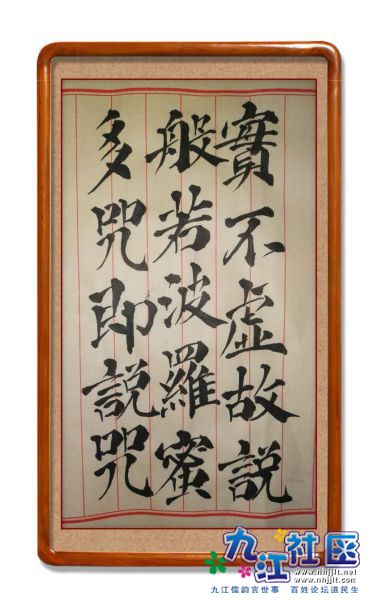 實不虛故說
般若波羅蜜
多咒即說咒
九江社区
www.nhjjlt.net
www.nhjjlt.com
九江儒韵言世事 百姓论坛道民生